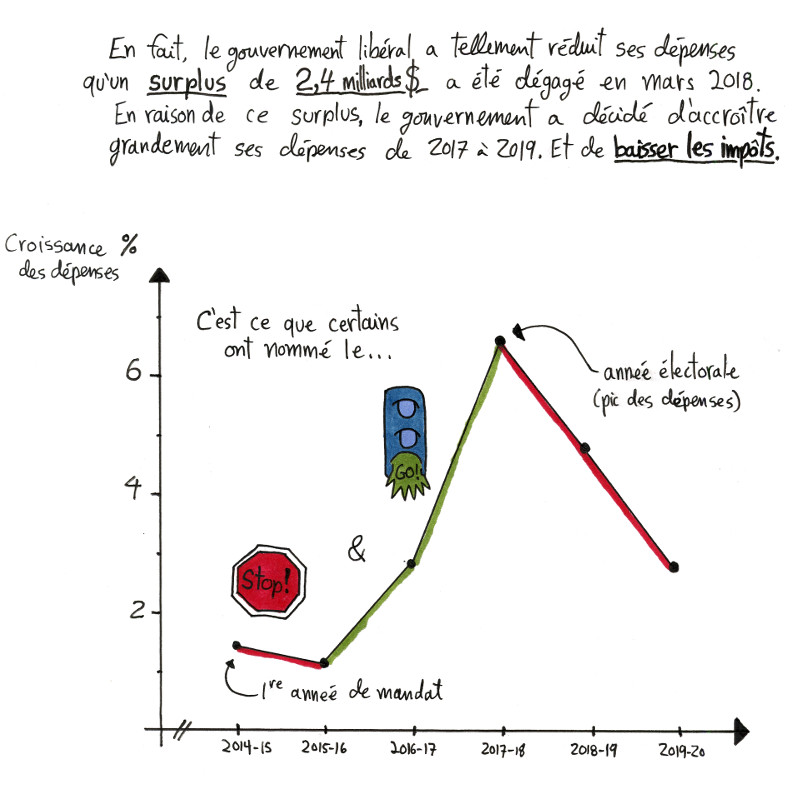 En fait, le gouvernement libéral a tellement réduit ses dépenses
qu'un surplus de 2,4 milliards $ a été dégagé en mars 2018.
En raison de ce surplus, le gouvernement a décidé d'accroître
grandement ses dépenses de 2017 à 2019. Et de baisser les impôts.
Croissance %
des dépenses
C'est ce que certains
ont nommé le...
6
anneé électorale
(pic des dépenses)
GO!
4
&
Stop!
2
1re anneé de mandat
2014-15 2015-16 2016-17 2017-18 2018-19 2019-20